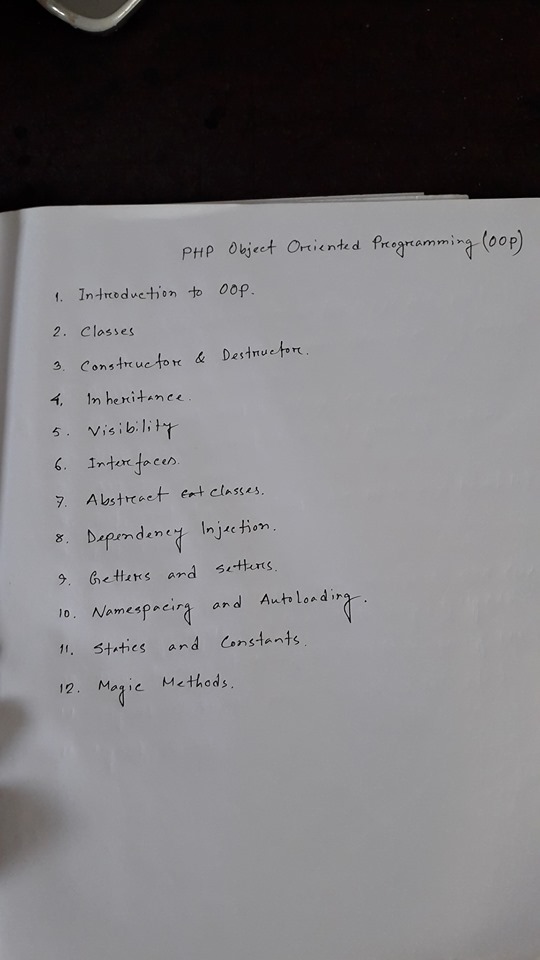 PHP Object Oriented Programming (OOP)
1. Introduction to OOP.
2. Classes
3. Constructor & Destructor.
4. Inheritance.
5. Visibility
6. Interfaces.
7. Abstract classes.
8. Dependency Injection.
9. Getters and setters.
10. Namespacing and Autoloading.
11. Statics and Constants.
12. Magic Methods.